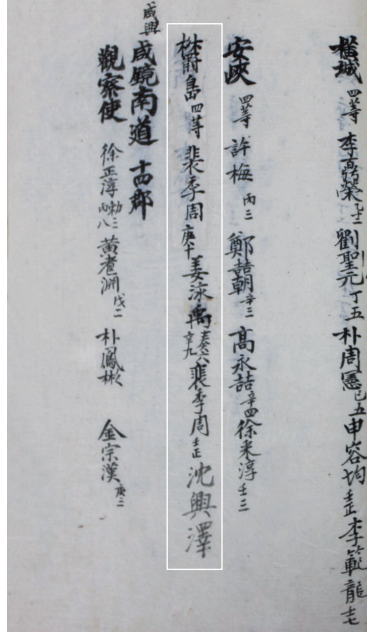 橫城 四等 李鼎榮 劉聖元 丁五 朴周憲 己五 申容均 壬正 李範龍 壬七
安峽 四等 許梅 丙三 鄭喆朝 辛三 高永喆 辛四 徐采淳 壬三
欝島 四等 裴季周 庚十 姜泳禹 辛九 裴季周 壬正 沈興澤
咸興
咸鏡南道 十四郡
觀察使 徐正淳 丙八 黃耆淵 戊二 朴鳳彬 金宗漢 庚三